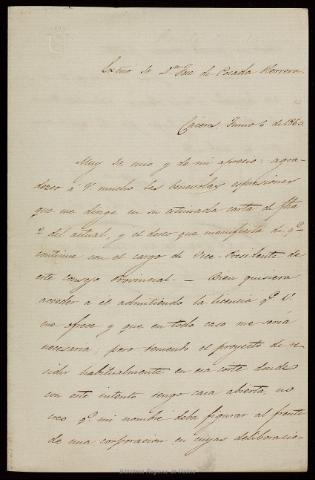 Exmo Sr Dn José de Posada Herrera
Cáceres Junio 6 de 1860
Muy Sr mio y de mi aprecio: agra-
dezco á V. mucho las benévolas espresiones
que me dirige en su estimada carta de fha
2 del actual, y el deseo que manifiesta de qe
continue con el cargo de Vice-Presidente de
este Consejo Provincial. — Bien quisiera
acceder a el admitiendo la licencia qe V.
me ofrece y que en todo caso me sería
necesaria; pero teniendo el proyecto de re-
sidir habitualmente en esa corte donde
con este intento tengo casa abierta, no
creo qe mi nombre deba figurar al frente
de una corporacion en cuyas deliberacio-